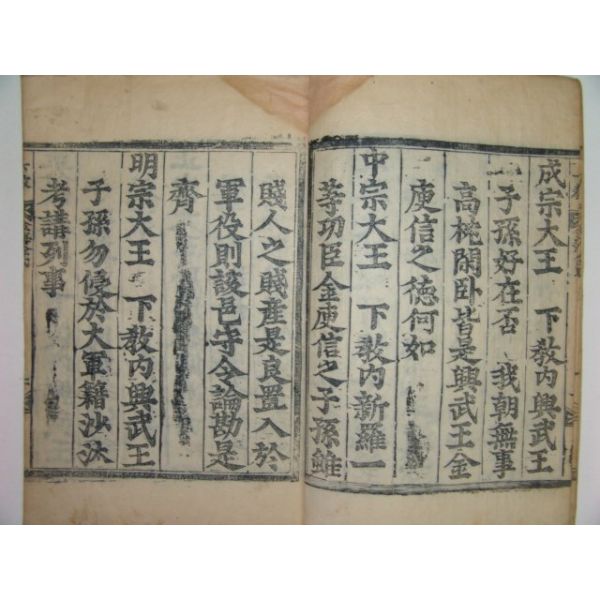 成宗大王　下敎內興武王
子孫好在否　我朝無事
高枕閑臥皆是興武王金
庾信之德何如
中宗大王　下敎內新羅一
等功臣金庾信之子孫雖
賤人之賤産是良置入於
軍役則該邑守令論勘是
齊
明宗大王　下敎內興武王
子孫勿侵於大軍籍沙汰
考講列事